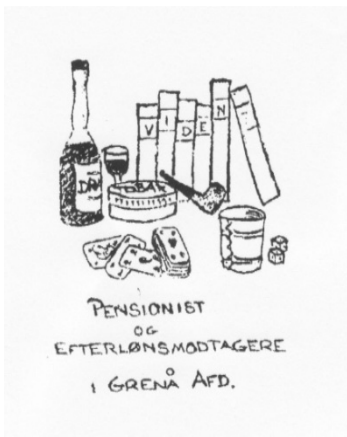 VIDEN
PENSIONIST
OG
EFTERLØNSMODTAGERE
I GRENÅ AFD.